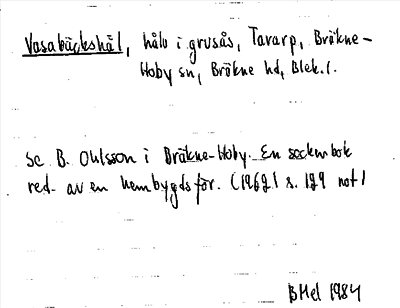 Vasabäckshäl, hålv i grusås, Tararp, Bräkne-
Hoby sn, Bräkne hd, Blek. l.
Se B. Ohlsson i Bräkne-Hoby. En sockenbok
red. av en hembygdsför. (1962) s. 129 not 1
BHel 1984